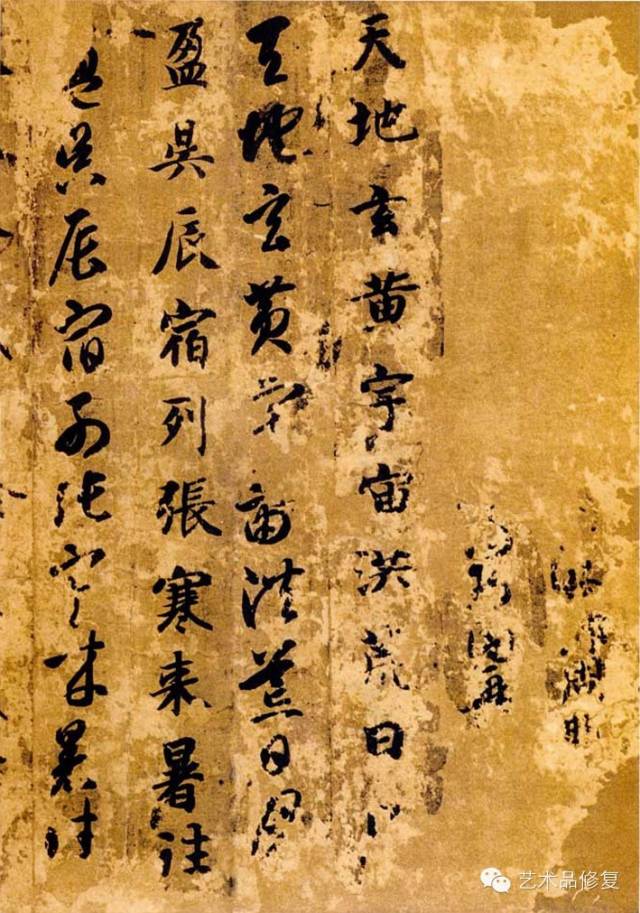 天地玄黄宇宙洪荒日
天地玄黄宇宙洪荒日月
盈昃辰宿列張寒来暑往
盈昃辰宿列張寒来暑往
艺术品修复